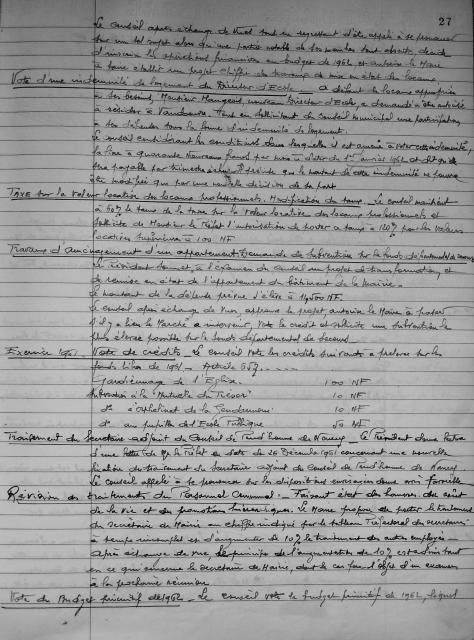 27
Le Conseil après échange de vues tout en regrettant d'être appelé à se prononcer
sur un tel sujet alors qu'une partie notable de ses membres sont absents, décide
d'inscrire les opérations financières au budget de 1962 et autorise le Maire
à faire établir un projet chiffré des travaux de mise en état des locaux.
Vote d'une indemnité de logement du Directeur d'Ecole. - A défaut de locaux appropriés
à ses besoins, Monsieur Mangeot, nouveau Directeur d'Ecole, a demandé à être autorisé
à résider à Vandoeuvre. Tout en sollicitant du Conseil municipal une participation
à ses dépenses sous la forme d'indemnité de logement.
Le Conseil considérant les conditions dans lesquelles il est amené à voter cette indemnité,
la fixe à quarante nouveaux francs par mois à dater du 1er 1962 et dit qu'elle
sera payable par trimestre échu. Il précise que le montant de cette indemnité ne pourra
être modifié que par une nouvelle décision de sa part.
Taxe sur la valeur locative des locaux professionnels. Modification du taux. - Le Conseil maintient
à 60% le taux de la taxe sur la valeur locative des locaux professionnels et
sollicite de Monsieur le Préfet l'autorisation de porter ce taux à 120% pour les valeurs
locatives supérieures à 100 NF
Travaux d'aménagement d'un appartement. Demande de subvention sur le fonds départemental de secours
Le Président soumet à l'examen du Conseil un projet de transformation et
de remise en état de l'appartement du bâtiment de la Mairie.
Le montant de la dépense prévue s'élève à 14,500 NF.
Le Conseil après échange de vues, approuve le projet autorise le Maire à passer
s'il y a lieu le Marché à intervenir, vote le crédit et sollicite une subvention la
plus élevée possible sur le fonds départemental de secours.
Exercice 1961. Vote de crédits. Le Conseil vote les crédits suivants à prélever sur les
fonds libres de 1961 - Article
Gardiennage de l'Eglise. 100 NF
Subvention à la Mutuelle du Trésor 10 NF
do à Orphelinat de la Gendarmerie 10 NF
do aux pupilles de l'Ecole Publique 50 NF
Traitement du Secrétaire adjoint du Conseil de Prud'homme de Nancy. - Le Président donne lecture
d'une lettre de Mr le Préfet en date du 26 Décembre 1961 concernant une nouvelle
fixation du traitement du Secrétaire adjoint du Conseil de Prud'homme de Nancy.
Le Conseil appelé à se prononcer sur les dispositions envisagées donne avis favorable
Révision des traitements du Personnel Communal. - Faisant état des hausses du coût
de la vie et des promotions hiérarchiques, le Maire propose de porter le traitement
du Secrétaire de Mairie au chiffre indiqué par le tableau Préfectoral des secrétaires
à temps incomplet et d'augmenter de 10% le traitement des autres employés.
Après échange de vues le principe de l'augmentation de 10% est admis sauf
en ce qui concerne le Secrétaire de Mairie, dont le cas fera l'objet d'un examen
à la prochaine réunion.
Vote du Budget primitif de 1962. - Le Conseil vote le budget primitif de 1962, lequel